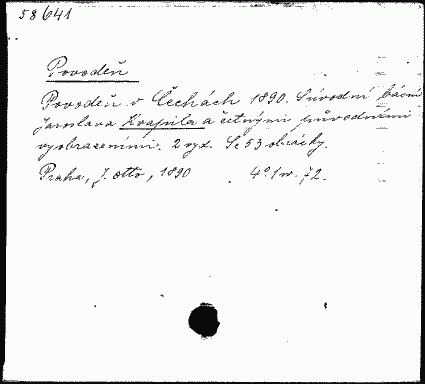 58641
Povodeň
Povodeň v Čechách 1890. S úvodní básní
Jaroslava Kvapila a četnými původními
vyobrazeními. 2 vyd. S 53 obrázky.
Praha, J. Otto, 1890 4° 1 w.